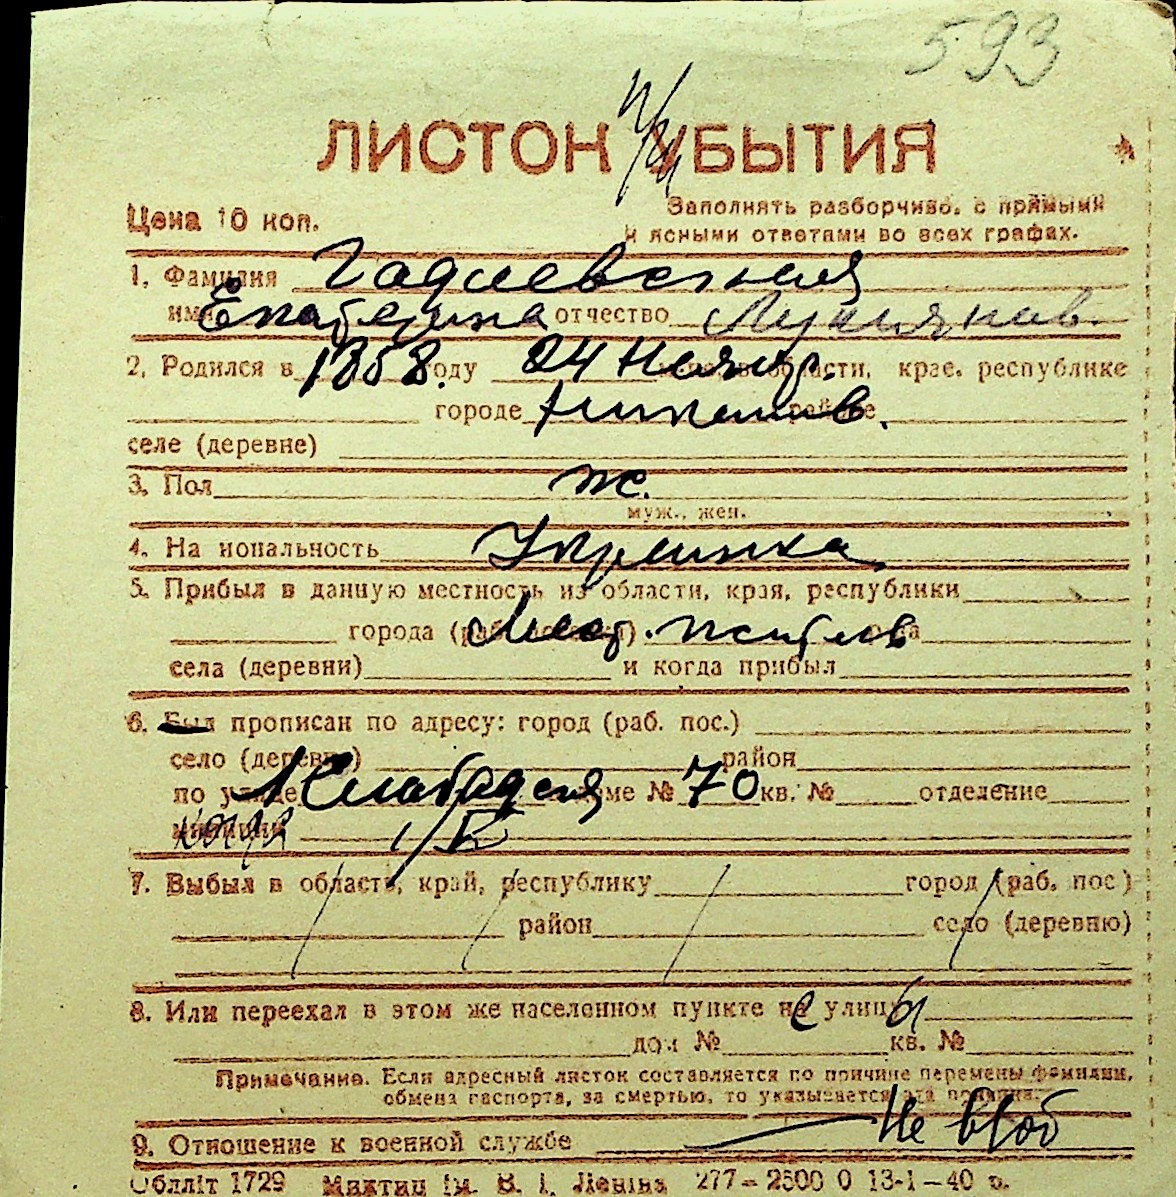 593
ЛИСТОК УБЫТИЯ
Цена 10 коп.
Заполнять разборчиво, с прямыми
и ясными ответами во всех графах.
1. Фамилия
имя Екатерина отчество Лукиянов.
2. Родился в 1858. году 24 Ноябр. области, крае, республике
городе Николаев. районе
селе (деревне)
3. Пол ж.
муж., жен.
4. Национальность Украинка
5. Прибыл в данную местность из области, края, республики
города (раб. поселка) Мест. житель
села (деревни) и когда прибыл
6. Был прописан по адресу: город (раб. пос.)
село (деревня) район
по улице 1 Слободская доме № 70 кв. № отделение
милиции
7. Выбыл в область, край, республику город (раб. пос.)
район село (деревню)
8. Или переехал в этом же населенном пункте на улицу
дом № кв. №
Примечание. Если адресный листок составляется по причине перемены фамилии,
обмена паспорта, за смертью, то указывается эта причина.
9. Отношение к военной службе Не в/об
Обліт 1729 ім. В. І. Леніна 277–2500 0 13-1–40 р.